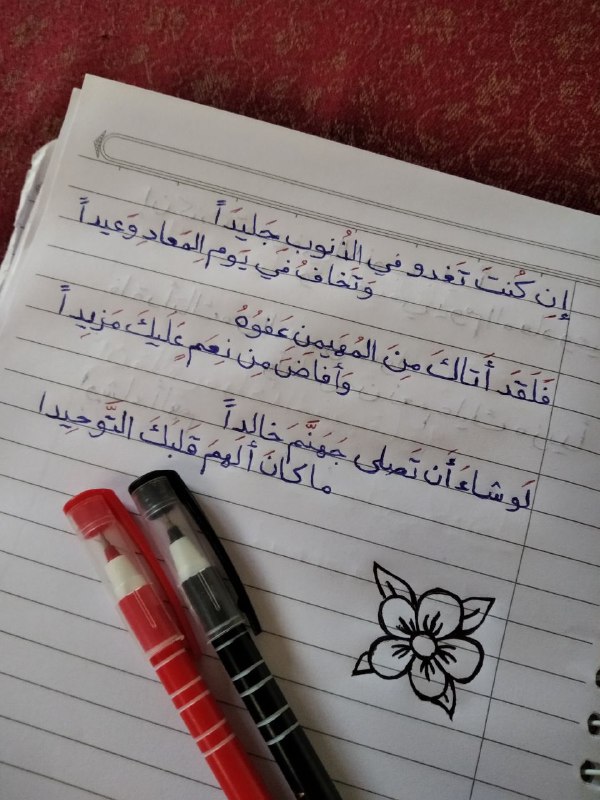 إِن كُنتَ تَغدو في الذُنوبِ جَليدَاً
وَتَخافُ في يَومِ المَعادِ وَعيداً
فَلَقَد أَتاكَ مِنَ المُهَيمِنِ عَفوُهُ
وَأَفاضَ مِن نِعَمٍ عَلَيكَ مَزيداً
لَو شاءَ أَن تَصلى جَهَنَّمَ خالداً
ما كانَ أَلهَمَ قَلبَكَ التَّوحِيدا